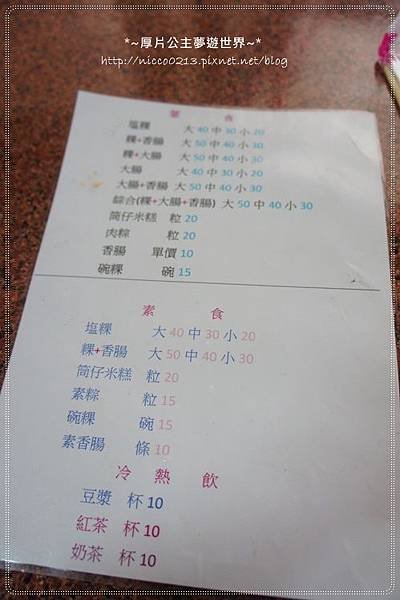 *~厚片公主夢遊世界~*
http://nicco0213.pixnet.net/blog
葷 食
塩粿 大 40 中 30 小 20
粿+香腸 大 50 中 40 小 30
粿+大腸 大 50 中 40 小 30
大腸 大 40 中 30 小 20
大腸+香腸 大 50 中 40 小 30
綜合(粿+大腸+香腸) 大 50 中 40 小 30
筒仔米糕 粒 20
肉粽 粒 20
香腸 單價 10
碗粿 碗 15
素 食
塩粿 大 40 中 30 小 20
粿+香腸 大 50 中 40 小 30
筒仔米糕 粒 20
素粽 粒 15
碗粿 碗 15
素香腸 條 10
冷 熱 飲
豆漿 杯 10
紅茶 杯 10
奶茶 杯 10